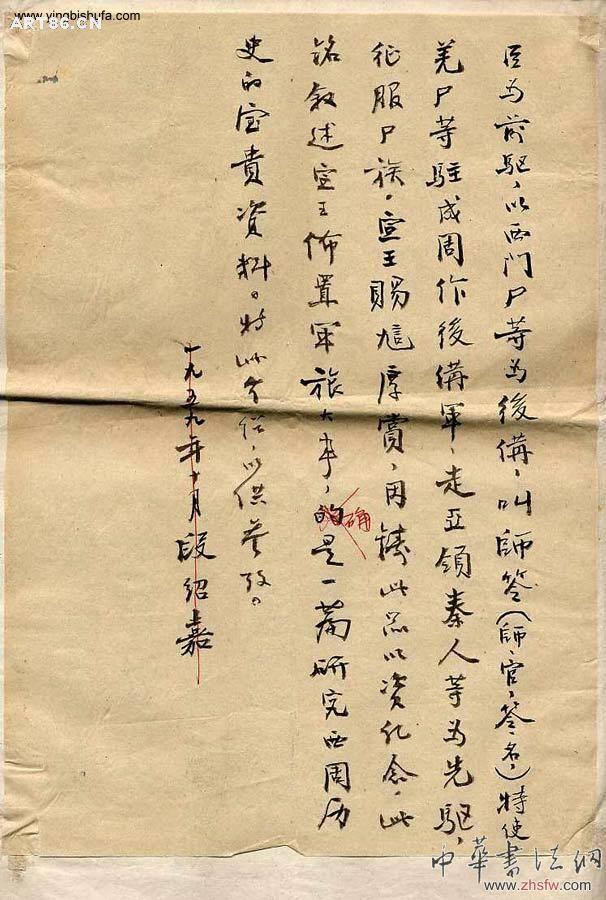 www.yingbishufa.com
ART86.CN
臣为前驱,以西门尸等为後備,叫師笭(師、官,笭名,)特使
羌尸等駐成周作後備軍,走亞領秦人等为先驱,
征服尸族。宣王賜訇厚賞,因鑄此器以资纪念,此
銘叙述宣王佈置軍旅大事,的确是一篇研究西周历
史的宝貴資料。特此介绍,以供參攷。
一九五九年十月段绍嘉
中華書法網
www.zhsfw.com